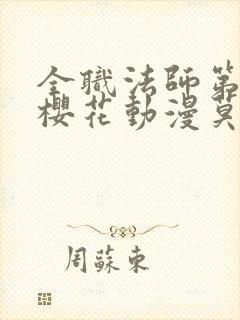 全職法師第
櫻花動漫莫
周蘇東